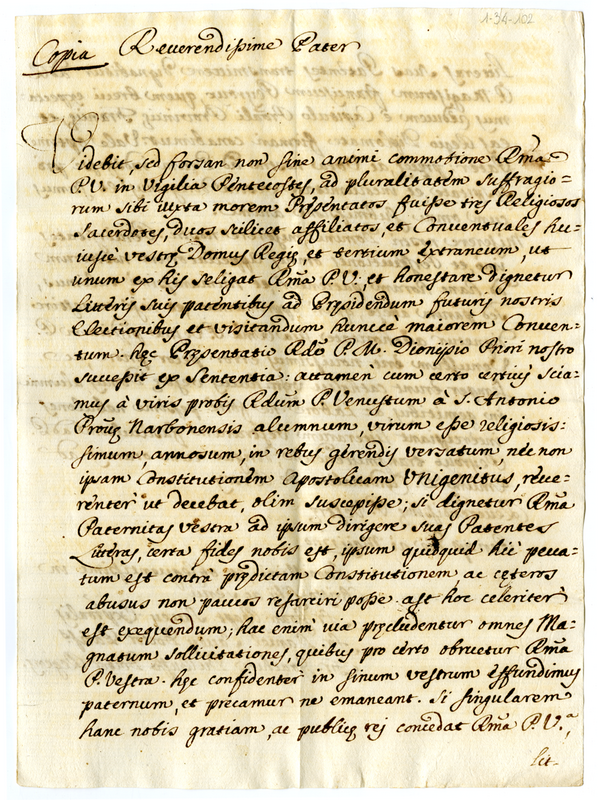 1-34-102
Copia Reverendissime Pater
Videbit, sed forsan non sine animi commotione Rma
P.V. in Vigilia Pentecostes, ad pluralitatem suffragio=
rum sibi iuxta morem Pręsentatos fuisse tres Religiosos
Sacerdotes, duos scilicet affiliatos, et Conventuales hu=
iusce vestrę Domus Regię, et tertium Extraneum, ut
unum ex his seligat Rma P.V. et honestare dignetur
Litteris suis patentibus ad Pręsidendum futuris nostris
Electionibus et visitandum huncce maiorem Conven=
tum. hęc Pręsentatio Rdo P.M. Dionysio Priori nostro
successit ex Sententia: attamen cum certo certius scia=
mus à viris probis Rdum P. Venustum à S. Antonio
Prouę Narbonensis alumnum, virum esse religiosis=
simum, annosum, in rebus gerendis versatum, nec non
ipsam Constitutionem Apostolicam Unigenitus, reve=
renter ut decebat, olim suscepisse; si dignetur Rma
Paternitas Vestra ad ipsum dirigere suas Patentes
Litteras, certa fides nobis est, ipsum quidquid hic pecca=
tum est contra prędictam Constitutionem, ac cęteros
abusus non paucos resarciri posse. ast hoc celeriter
est exequendum; hac enim via pręcludentur omnes Ma=
gnatum sollicitationes, quibus pro certo obruetur Rma
P. Vestra. hęc confidenter in sinum vestrum effundimus
paternum, et precamur ne emaneant. Si singularem
hanc nobis gratiam, ac publicę rei concedat Rma P.V.a,